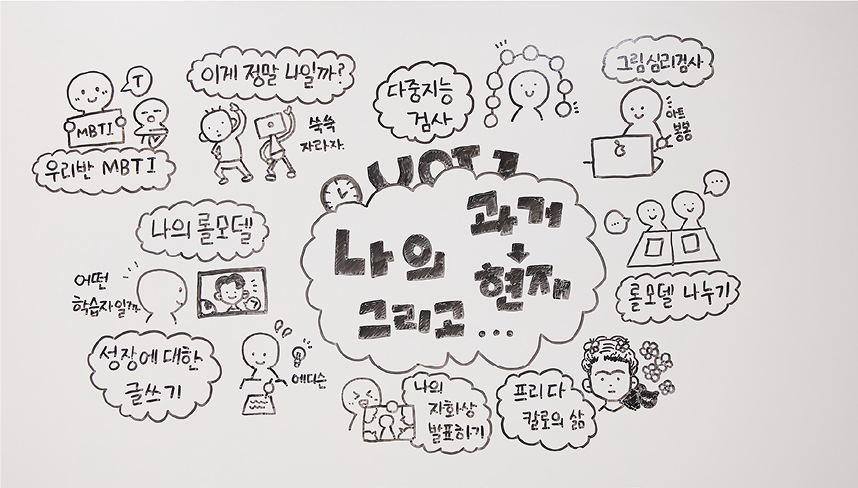 T
MBTI
우리반 MBTI
이게 정말 나일까?
쑥쑥
자라자.
다중지능
검사
그림심리검사
아트
봉봉
나의 롤모델
어떤
학습자일까?
나의
과거
현재
그리고...
롤모델 나누기
성장에 대한
글쓰기
에디슨
나의
자화상
발표하기
프리다
칼로의 삶